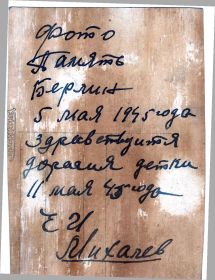 Фото
Память
Берлин
5 мая 1945 года
Здравствуйтя
дорагия детки
11 мая 45 года
Е И
Михалев